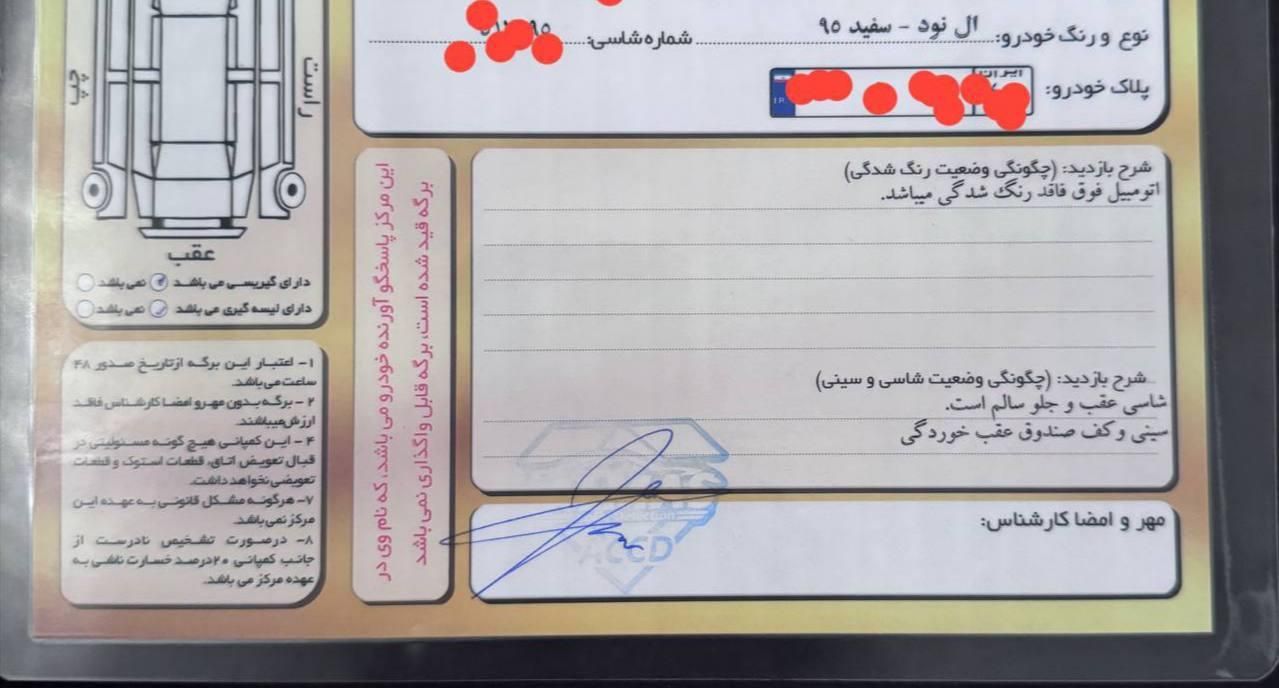 نوع و رنگ خودرو: ال نود - سفید ۹۵ شماره شاسی:
پلاک خودرو:
ایران
I.R.
راست
چپ
عقب
دارای گیریسی می باشد نمی باشد
دارای لیسه گیری می باشد نمی باشد
شرح بازدید: (چگونگی وضعیت رنگ شدگی)
اتومبیل فوق فاقد رنگ شدگی میباشد.
شرح بازدید: (چگونگی وضعیت شاسی و سینی)
شاسی عقب و جلو سالم است.
سینی و کف صندوق عقب خوردگی
مهر و امضا کارشناس:
ACCD
این مرکز پاسخگو آورنده خودرو می باشد، که نام وی در
برگه قید شده است، برگه قابل واگذاری نمی باشد
۱- اعتبار این برگه از تاریخ صدور ۴۸
ساعت می باشد.
۲- برگه بدون مهر و امضا کارشناس فاقد
ارزش میباشند.
۴- این کمپانی هیچ گونه مسئولیتی در
قبال تعویض اتاق، قطعات استوک و قطعات
تعویضی نخواهد داشت.
۷- هرگونه مشکل قانونی به عهده این
مرکز نمی باشد.
۸- درصورت تشخیص نادرست از
جانب کمپانی ۲۰درصد خسارت ناشی به
عهده مرکز می باشد.